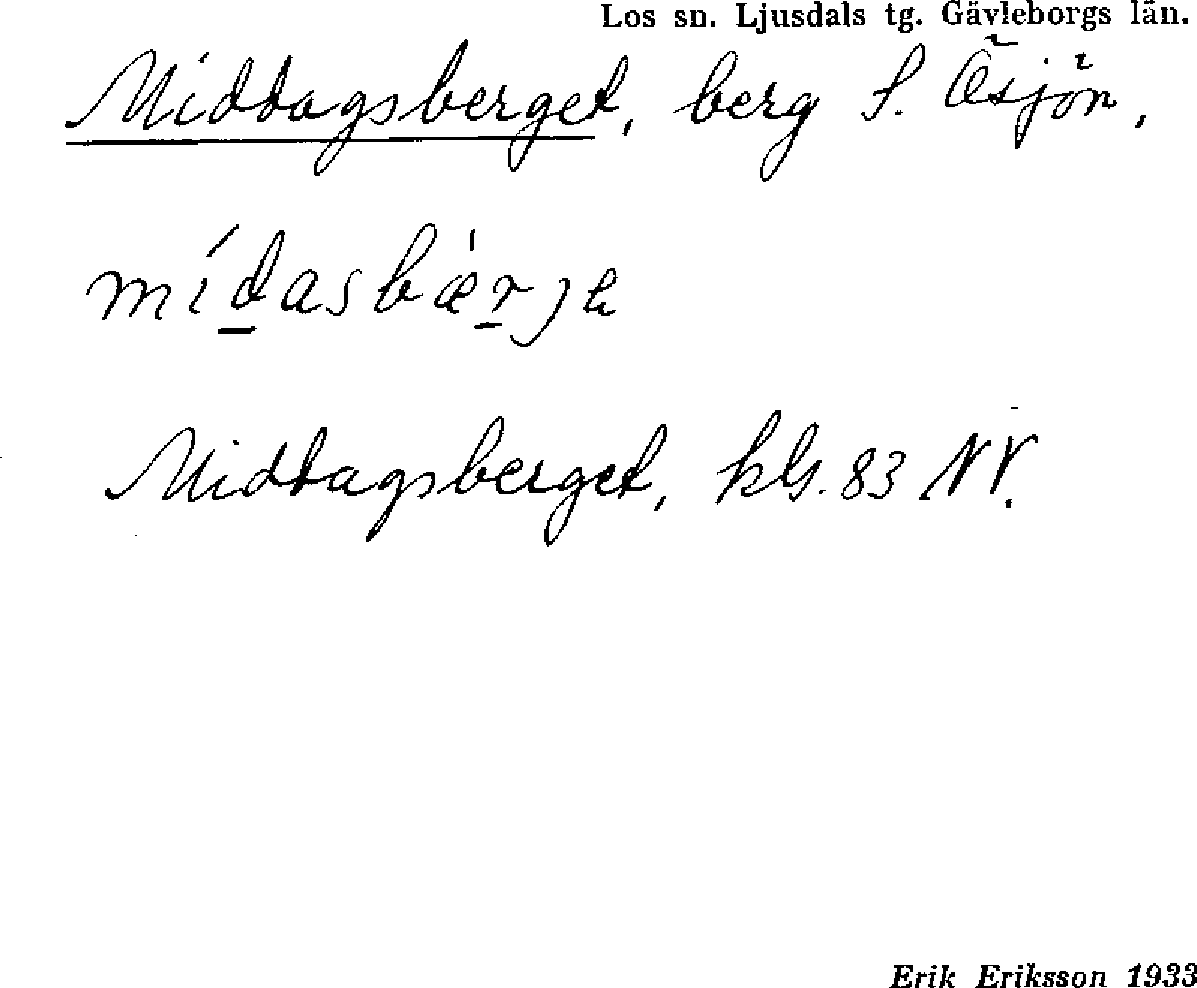 Los sn. Ljusdals tg. Gävleborgs län.
Middagsberget, berg S. Öxsjön,
mídasbær̲je
Middagsberget, kbl. 83 NV.
Erik Eriksson 1933